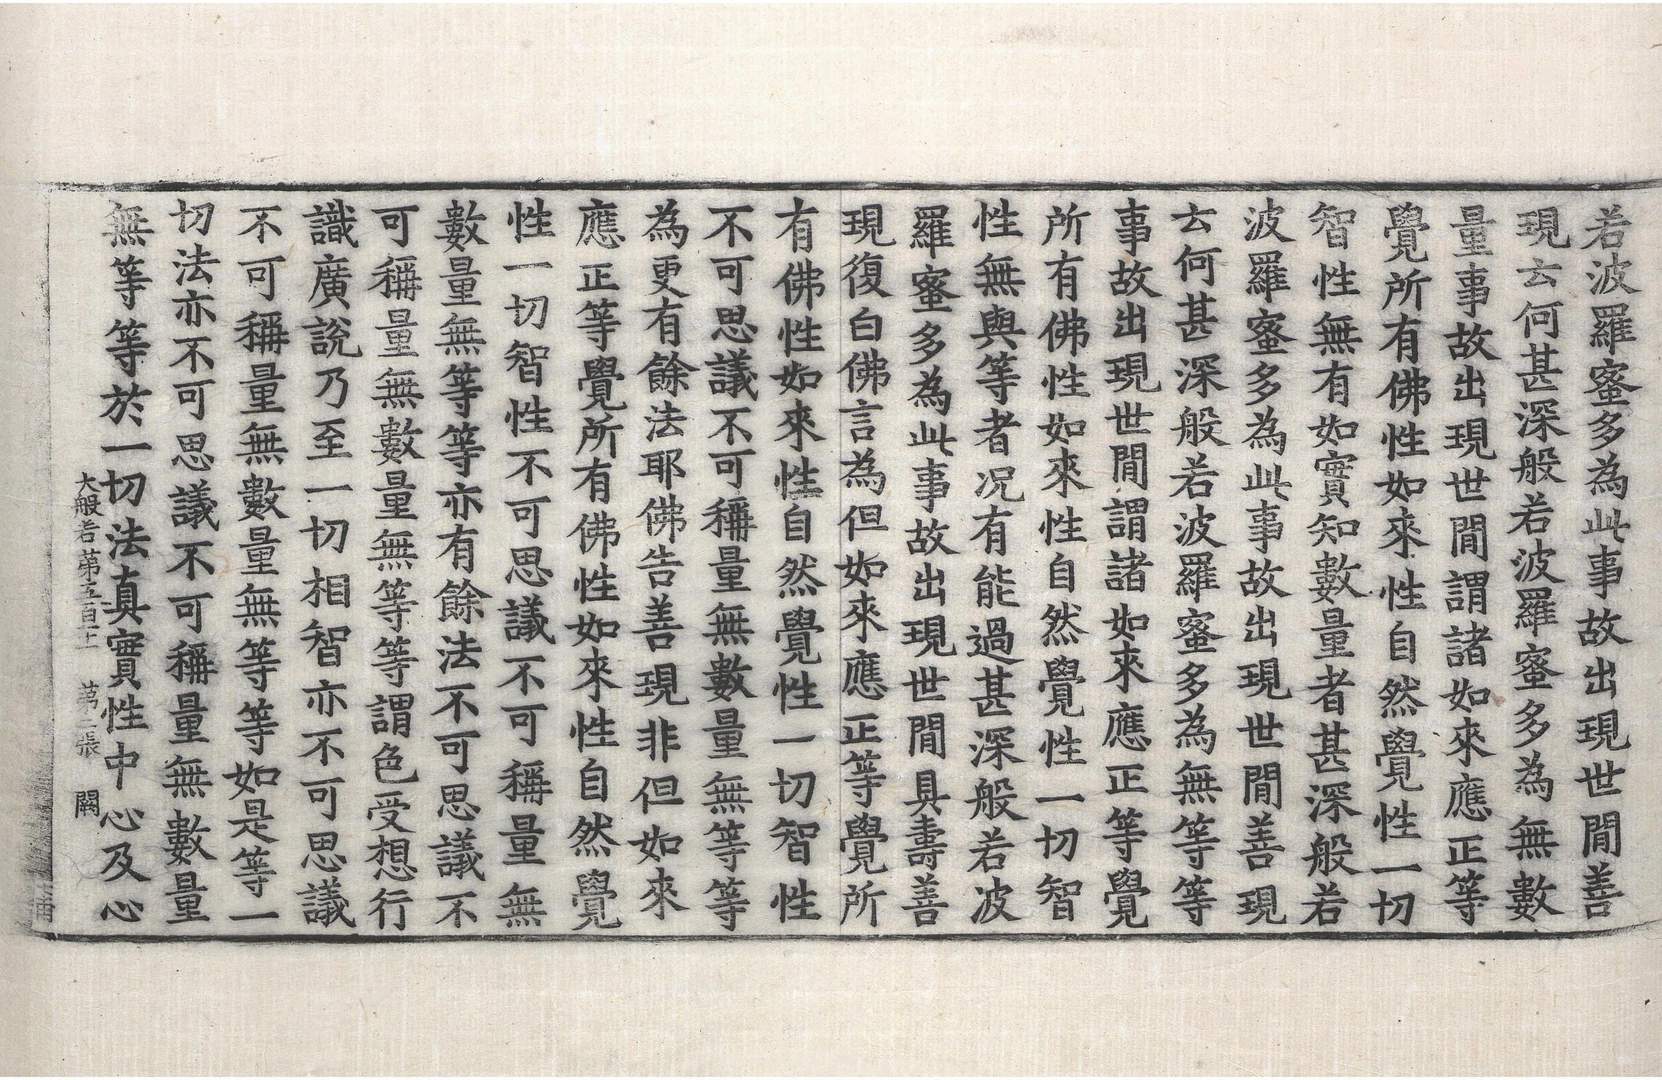 若波羅蜜多為此事故出現世間善
現云何甚深般若波羅蜜多為無數
量事故出現世間謂諸如來應正等
覺所有佛性如來性自然覺性一切
智性無有如實知數量者甚深般若
波羅蜜多為此事故出現世間善現
云何甚深般若波羅蜜多為無等等
事故出現世間謂諸如來應正等覺
所有佛性如來性自然覺性一切智
性無與等者況有能過甚深般若波
羅蜜多為此事故出現世間具壽善
現復白佛言為但如來應正等覺所
有佛性如來性自然覺性一切智性
不可思議不可稱量無數量無等等
為更有餘法耶佛告善現非但如來
應正等覺所有佛性如來性自然覺
性一切智性不可思議不可稱量無
數量無等等亦有餘法不可思議不
可稱量無數量無等等謂色受想行
識廣說乃至一切相智亦不可思議
不可稱量無數量無等等如是等一
切法亦不可思議不可稱量無數量
無等等於一切法真實性中心及心
大般若第五百 第 張 闕